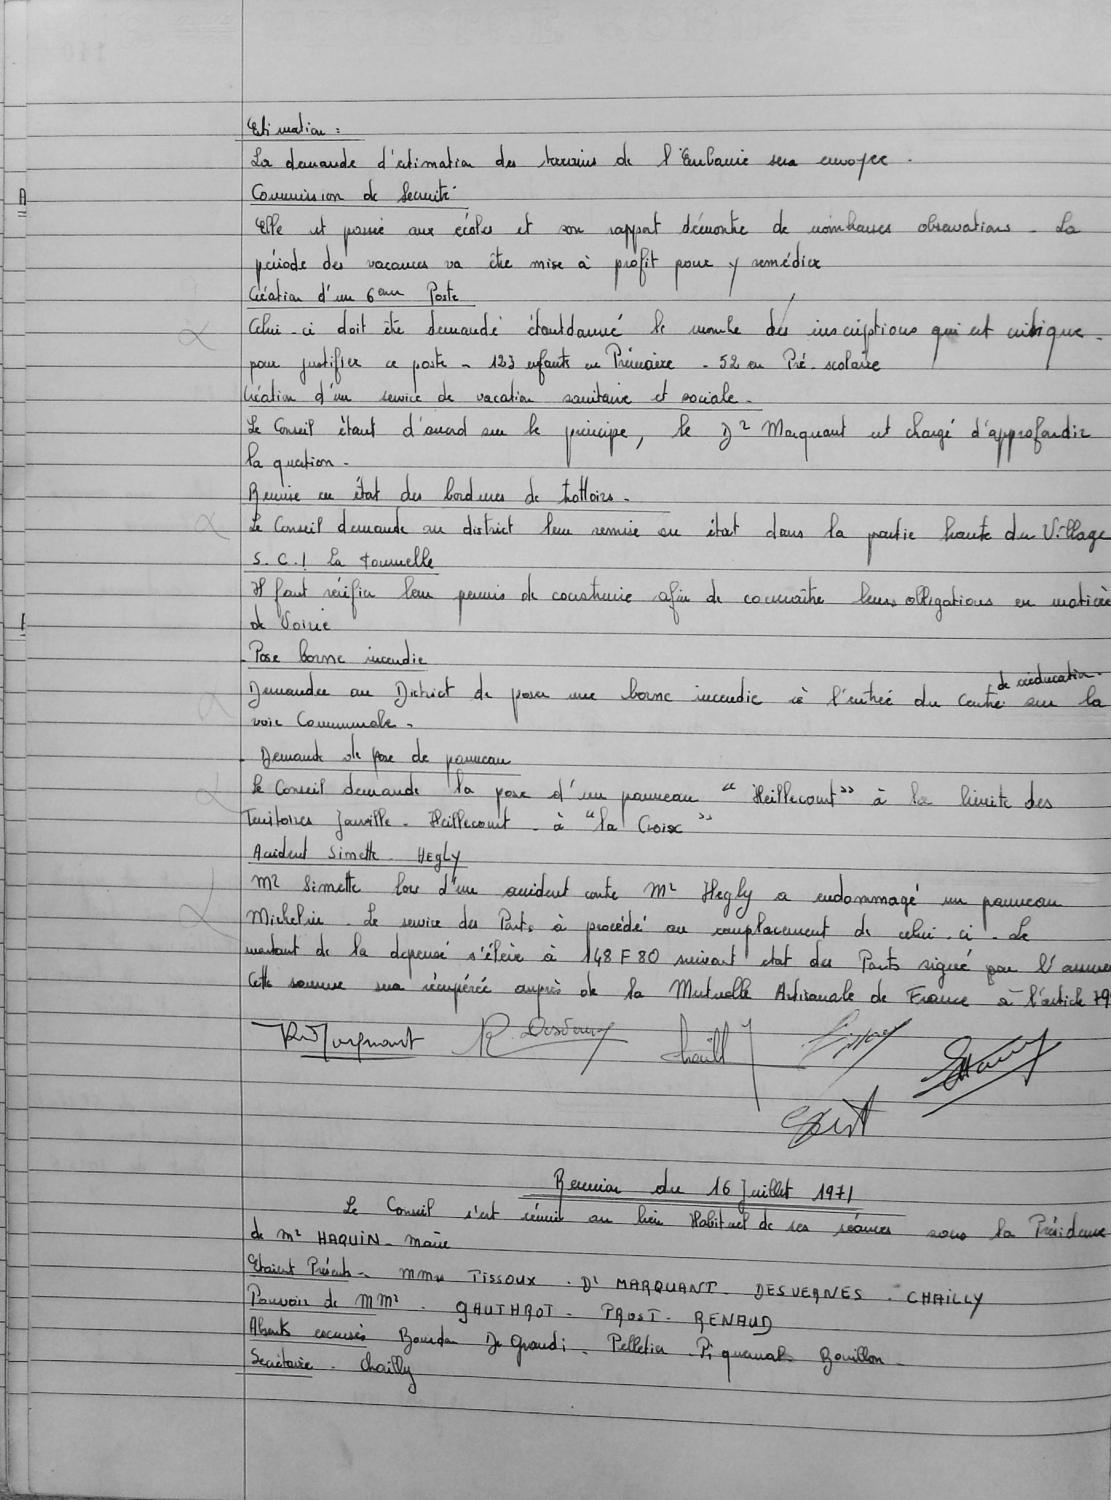 Estimation :
La demande d'estimation des terrains de l'Enbanie sera envoyée.
Commission de Sécurité
A
Elle est passée aux écoles et son rapport démontre de nombreuses observations - La
période des vacances va être mise à profit pour y remédier
Création d'un 6eme Poste
Celui-ci doit être demandé étantdonné le nombre des inscriptions qui est critique -
pour justifier ce poste - 123 enfants en Primaire - 52 en Pré-scolaire
Création d'un service de vacation sanitaire et sociale -
Le Conseil étant d'accord sur le principe, le Dr Marquant est chargé d'approfondir
la question -
Remise en état des bordures de trottoirs -
Le Conseil demande au district leur remise en état dans la partie haute du Village
S.C.I La Tournelle
Il faut vérifier leur permis de construire afin de connaître leurs obligations en matière
de Voirie
- Pose borne incendie
Demander au District de poser une borne incendie à l'entrée du Centre de rééducation sur la
voie Communale -
- Demande de pose de panneau
Le Conseil demande la pose d'un panneau "Heillecourt" à la limite des
Territoires Jarville - Heillecourt - à "la Croix"
Accident Simette - Hegly
Mr Simette lors d'un accident contre Mr Hegly a endommagé un panneau
Michelin - Le service des Ponts à procédé au remplacement de celui-ci - Le
montant de la depense s'élève à 148F80 suivant état des Ponts signé par l'
Cette somme sera récupérée auprès de la Mutuelle Artisanale de France à l'article 79
R. Desvernes
Chailly
Réunion du 16 Juillet 1971
Le Conseil s'est réuni au lieu Habituel de ses séances sous la Présidence
de Mr HAQUIN - Maire
Etaient Présents - MMrs TISSOUX - Dr MARQUANT - DESVERNES - CHAILLY
Pouvoir de MMr - GAUTHROT - PROST - RENAUD
Absents excusés Bourdon De Grandi - Pelletier - Bouillon -
Secrétaire - Chailly